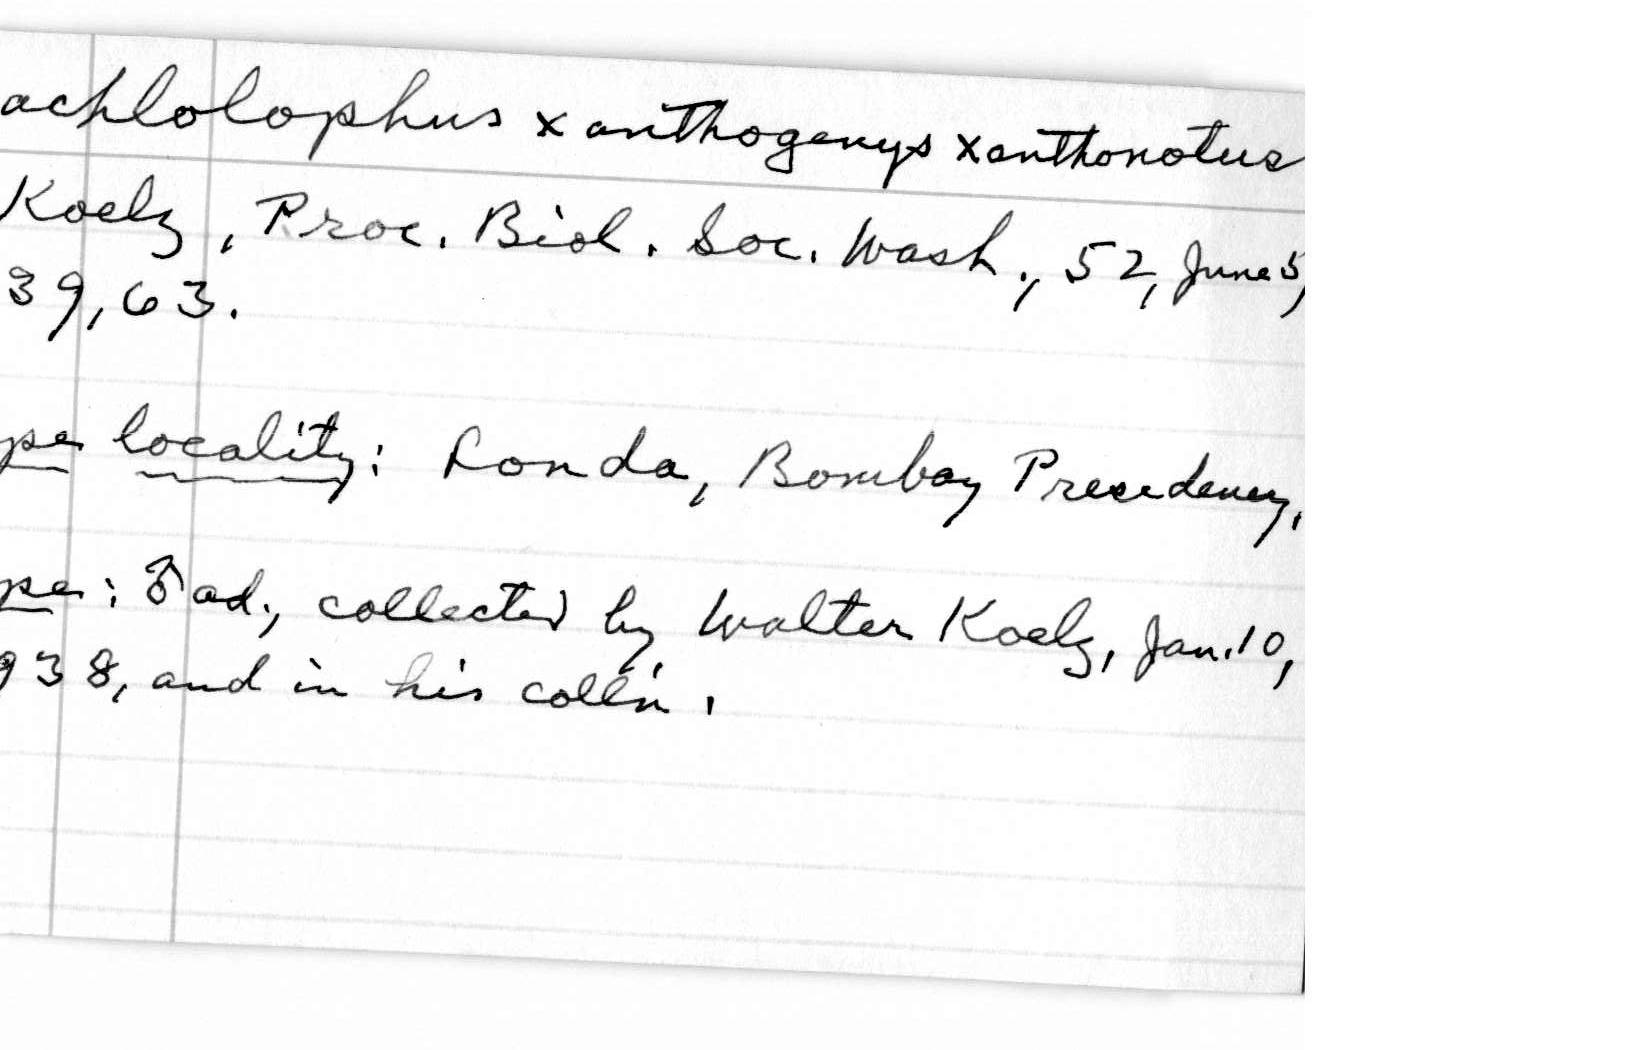 achlolophus xanthogenys xanthonotus
Koelz, Proc. Biol. Soc. Wash., 52, June 5,
39, 63.
pe locality: Londa, Bombay Presidency.
pe: ♂ ad., collected by Walter Koelz, Jan. 10,
938, and in his coll'n.